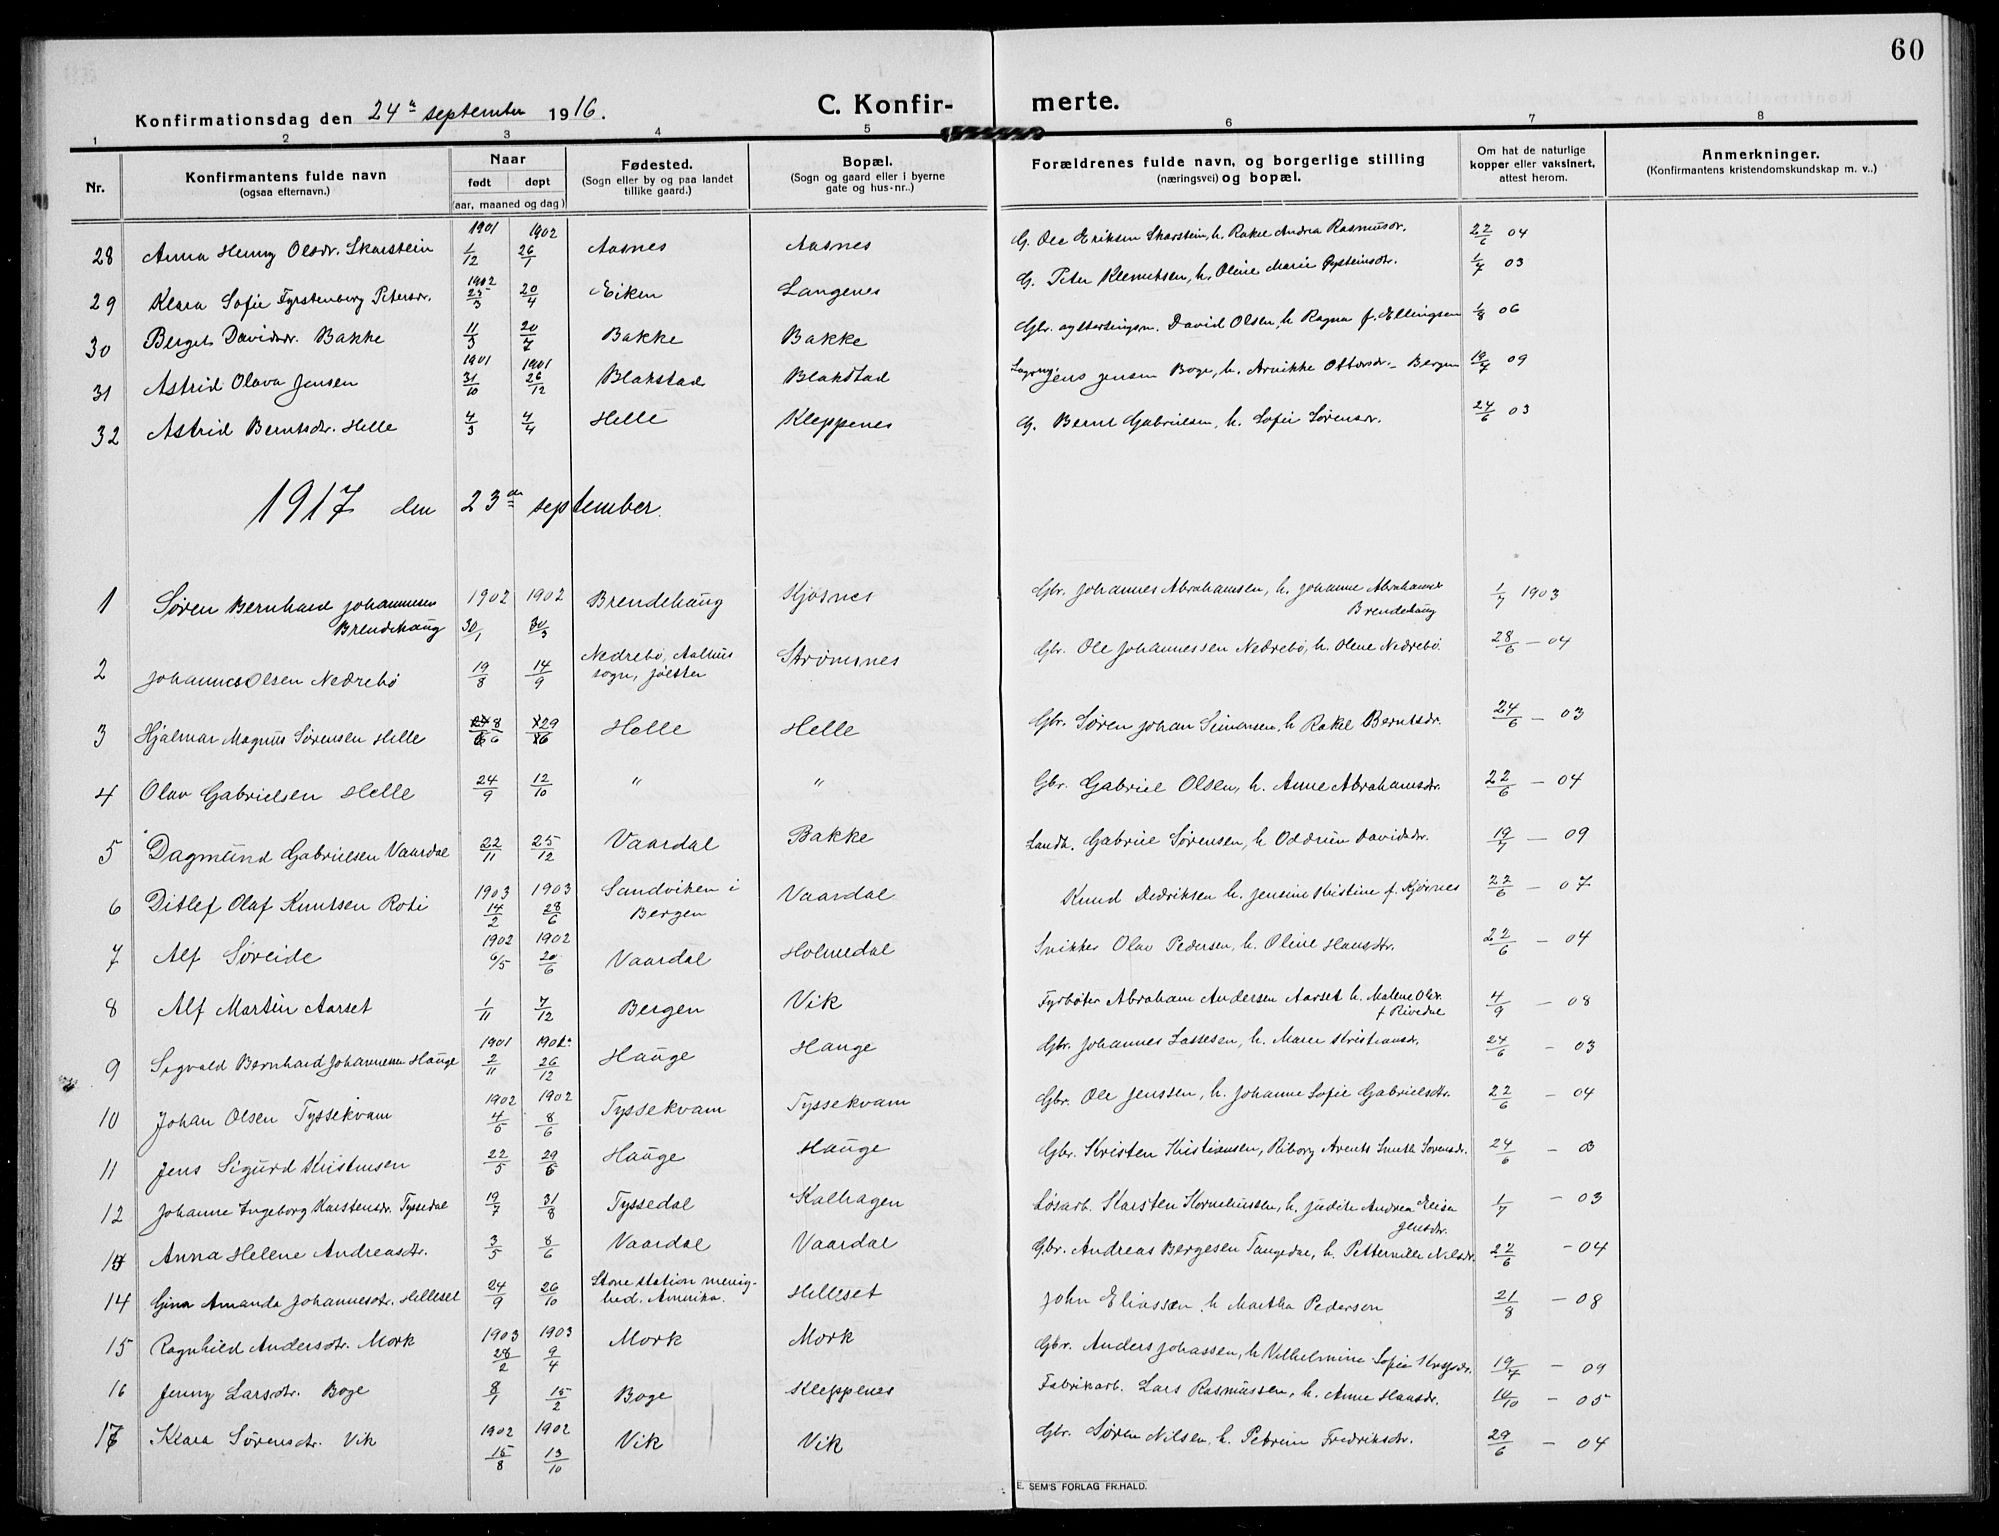 60
Konfirmationsdag den 24de september 1916.
C. Konfirmerte.
1 2 3 4 5 6 7 8
Nr. Konfirmantens fulde navn (ogsaa efternavn.) Naar født døpt (aar, maaned og dag) Fødested. (Sogn eller by og paa landet tillike gaard.) Bopæl. (Sogn og gaard eller i byerne gate og hus-nr..) Forældrenes fulde navn, og borgerlige stilling (næringsvei) og bopæl. Om hat de naturlige kopper eller vaksinert, attest herom. Anmerkninger. (Konfirmantens kristendomskundskap m. v..)
28 Anna Henny Olsdr. Skarstein 1901 1/12 1902 26/1 Aasnes Aasnes G. Ole Eriksen Skarstein, h. Rakel Andrea Rasmusdr. 22/6 04
29 Klara Sofie Fyrstenberg Petersdr. 1902 25/3 20/4 Eiken Langenes G. Peter Klemetsen, h. Oline Marie Øysteinsdr. 1/7 03
30 Berget Davidsdr. Bakke 11/5 20/7 Bakke Bakke Gbr. David Olsen, h. Ragna f. Ellingsen 1/8 06
31 Astrid Olava Jensen 1901 31/10 1901 26/12 Blakstad Blakstad Jens Jensen Boge, h. Arnikke Ottersdr. - Bergen 19/7 09
32 Astrid Berntsdr. Helle 4/3 4/4 Helle Kleppenes G. Bernt Gabrielsen, h. Sofie Sørensdr. 24/6 03
1917 den 23de september.
1 Søren Bernhard Johannesen Brendehaug 1902 30/1 1902 30/3 Brendehaug Kjøsnes Gbr. Johannes Abrahamsen, h. Johanne Abrahamsdr Brendehaug 1/7 1903
2 Johannes Olsen Nedrebø 19/8 14/9 Nedrebø, Aalhus sogn, Jølster Strømsnes Gbr. Ole Johannessen Nedrebø, h. Olene Nedrebø. 28/6 - 04
3 Hjalmar Magnus Sørensen Helle 8/6 29/6 Helle Helle Gbr. Søren Johan Simonsen, h. Rakel Berntsdr. 24/6 - 03
4 Olav Gabrielsen Helle 24/9 12/10 " " Gbr. Gabriel Olsen, h. Anne Abrahamsdr. 22/6 - 04
5 Dagmund Gabrielsen Vaardal 22/11 25/12 Vaardal Bakke Landh. Gabriel Sørensen, h. Oddrun Davidsdr. 19/7 - 09
6 Ditlef Olaf Knutsen Roti 1903 14/2 1903 28/6 Sandviken i Bergen Vaardal Knud Didriksen h. Jensine Kristine f. Kjøsnes 22/6 - 07
7 Alf Søreide 1902 6/5 1902 20/6 Vaardal Holmedal Snikker Olav Pedersen, h. Oline Hansdtr. 22/6 - 04
8 Alf Martin Aarset 1/11 7/12 Bergen Vik Fyrbøter Abraham Andersen Aarset h. Malene Olsdr. f Rivedal 4/9 - 08
9 Sigvald Bernhard Johannesen Hauge 1901 2/11 1901 26/12 Hauge Hauge Gbr. Johannes Lassesen, h. Maren Kristiansdr. 24/6 - 03
10 Johan Olsen Tyssekvam 1902 4/5 1902 8/6 Tyssekvam Tyssekvam Gbr. Ole Jenssen, h. Johanne Sofie Gabrielsdtr. 22/6 - 04
11 Jens Sigurd Kristensen 22/5 29/6 Hauge Hauge Gbr. Kristen Kristiansen, Riborg Arents Smith Sørensdr. 24/6 - 03
12 Johanne Ingeborg Karstensdr. Tyssedal 19/7 31/8 Tyssedal Kalhagen Løsarb. Karsten Korneliussen, h. Judith Andrea Elisa Jensdr. 1/7 - 03
13 Anna Helene Andreasdtr. 3/5 8/6 Vaardal Vaardal Gbr. Andreas Bergesen Tangedal, h. Petternille Nilsdr. 22/6 - 04
14 Gina Amanda Johannesdtr. Helleset 24/9 26/10 Stone station menighed. Amerika. Helleset John Eliassen h Martha Pedersen 21/8 - 08
15 Ragnhild Andersdtr. Mork 1903 28/2 1903 9/4 Mork Mork Gbr. Anders Johassen, h Vilhelmine Sofie 19/7 - 09
16 Jenny Larsdtr. Boge 8/1 15/2 Boge Kleppenes Fabrikarb. Lars Rasmussen, h. Anne Hansdr. 10/10 - 05
17 Klara Sørensdtr. Vik 1902 15/8 1902 13/10 Vik Vik Gbr. Søren Nilsen, h. Petrine Fredriksdtr. 29/6 - 04
E. SEM'S FORLAG FR.HALD.